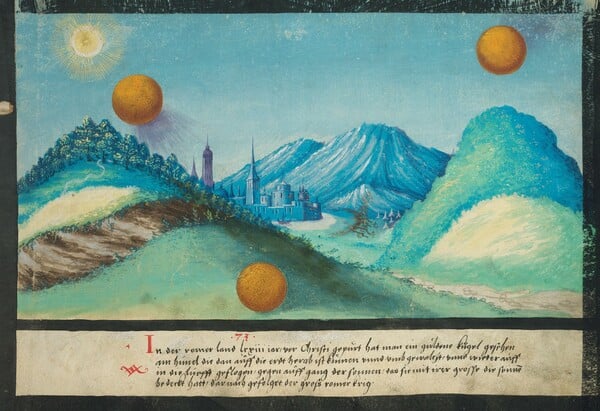 73
In der romer land lxxiii iar vor Christi gepurt hat man ein guldene kugel gesehen
am himel die dan auff die erde herab ist kumen vnnd vmb gewalzet vnnd wieder auff
in die lufft geflogen gegen auff gang der sonnen das sie mit irer grosse die sonne
bedeckt hatt darnach gefolget der gross romer krieg